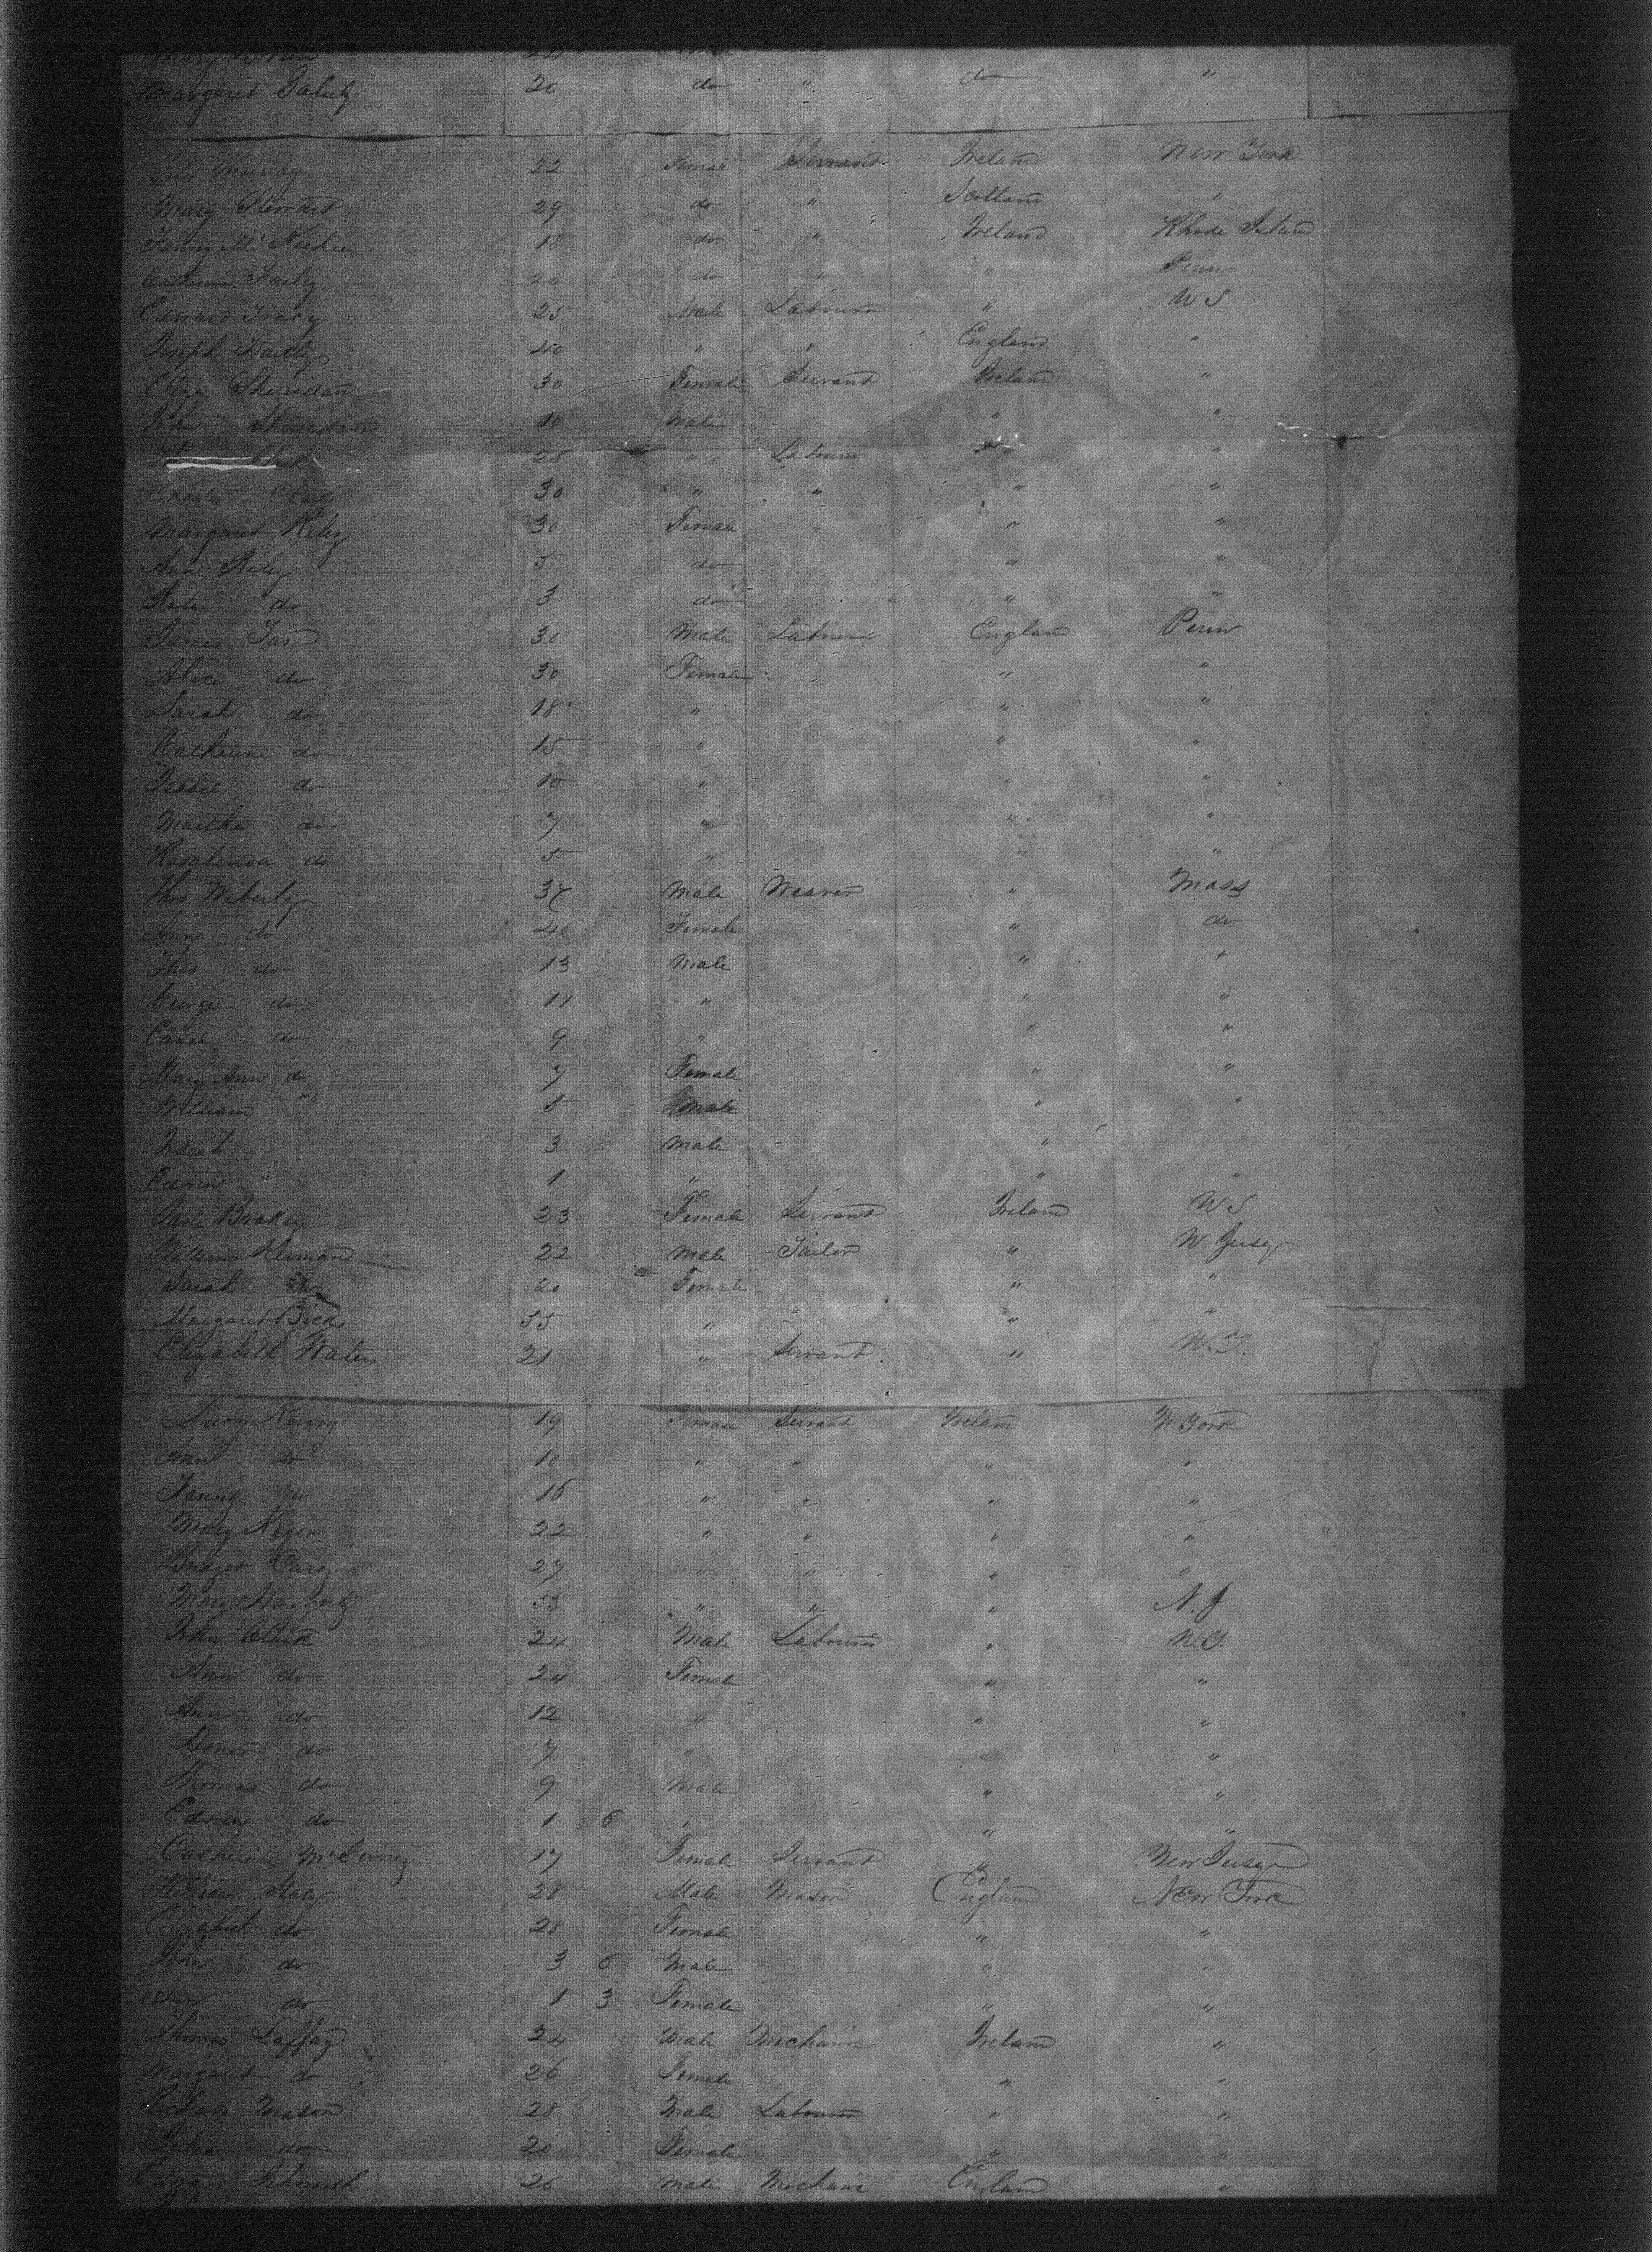 Mary 24 Female
Margaret 20 do " do "
Murray 22 Female Servant Ireland New York
Mary Stewart 29 do " Scotland "
Fanny Mc 18 do " Ireland Rhode Island
Catherine Farley 20 do " " Penn
Edward Tracy 25 Male Labourer " U S
Joseph Hartly 40 " " England "
Eliza Sherridan 30 Female Servant Ireland "
John Sherridan 10 Male " "
Clark 28 " Labourer " "
Charles Clark 30 " " " "
Margaret Riley 30 Female " " "
Ann Riley 5 do " "
Rose do 3 do " "
James 30 Male Labourer England Penn
Alice do 30 Female " "
Sarah do 18 " " "
Catherine do 15 " " "
Isabel do 10 " " "
Martha do 7 " " "
Rosalinda do 5 " " "
Thos Wiberly 37 Male Weaver " Mass
Ann do 40 Female " do
Thos do 13 Male " "
George do 11 " " "
do 9 " " "
Mary Ann do 7 Female " "
William " 5 Male " "
3 Male "
Edwin " 1 " " "
Jane Brakey 23 Female Servant Ireland U S
William Kernan 22 Male Tailor " N. Jersey
Sarah do 20 Female " "
Margaret 55 " " "
Elizabeth Waters 21 " Servant " N.Y.
Lucy 19 Female Servant Ireland N. York
Ann do 10 " " " "
Fanny do 16 " " " "
Mary 22 " " " "
Bridget Carey 27 " " " "
Mary Haggerty 53 " " " N. J
John Clark 24 Male Labourer " N.Y.
Ann do 24 Female " "
Ann do 12 " " "
Honor do 7 " " "
Thomas do 9 Male " "
Edwin do 1 6 " " "
Catherine 17 Female Servant " New Jersey
William Stacy 28 Male Mason England New York
Elizabeth do 28 Female " "
John do 3 6 Male " "
Ann do 1 3 Female " "
Thomas Laffay 24 Male Mechanic Ireland "
Margaret do 26 Female " "
Richard Mason 28 Male Labourer " "
Julia do 20 Female " "
Edward 26 Male Mechanic England "